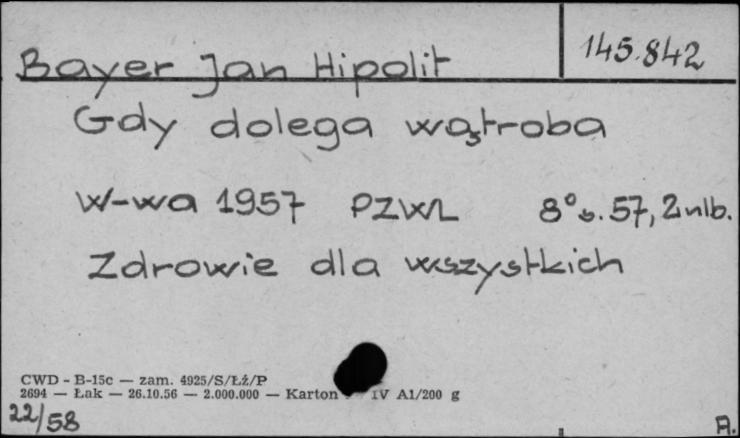 145.842
Bayer Jan Hipolit
Gdy dolega wątroba
W-wa 1957 PZWL 8° s. 57, 2 nlb.
Zdrowie dla wszystkich
CWD - B-15c — zam. 4925/S/Łż/P
2694 — Łak — 26.10.56 — 2.000.000 — Karton IV A1/200 g
22/58
A.